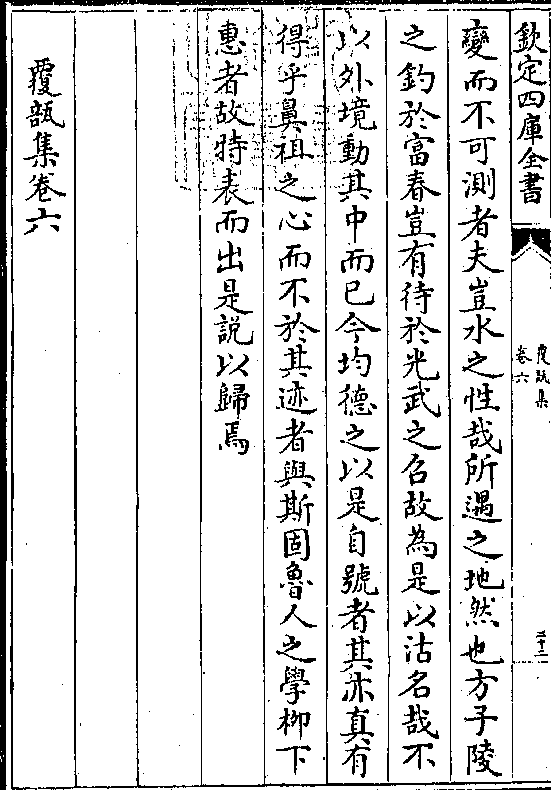 欽定四庫全書
覆瓿集
卷六
二十二
變而不可測者夫豈水之性哉所遇之地然也方子陵
之釣於富春豈有待於光武之召故為是以沽名哉不
以外境動其中而已今均德之以是自號者其亦真有
得乎鼻祖之心而不於其迹者與斯固魯人之學柳下
惠者故特表而出是說以歸焉
覆瓿集卷六